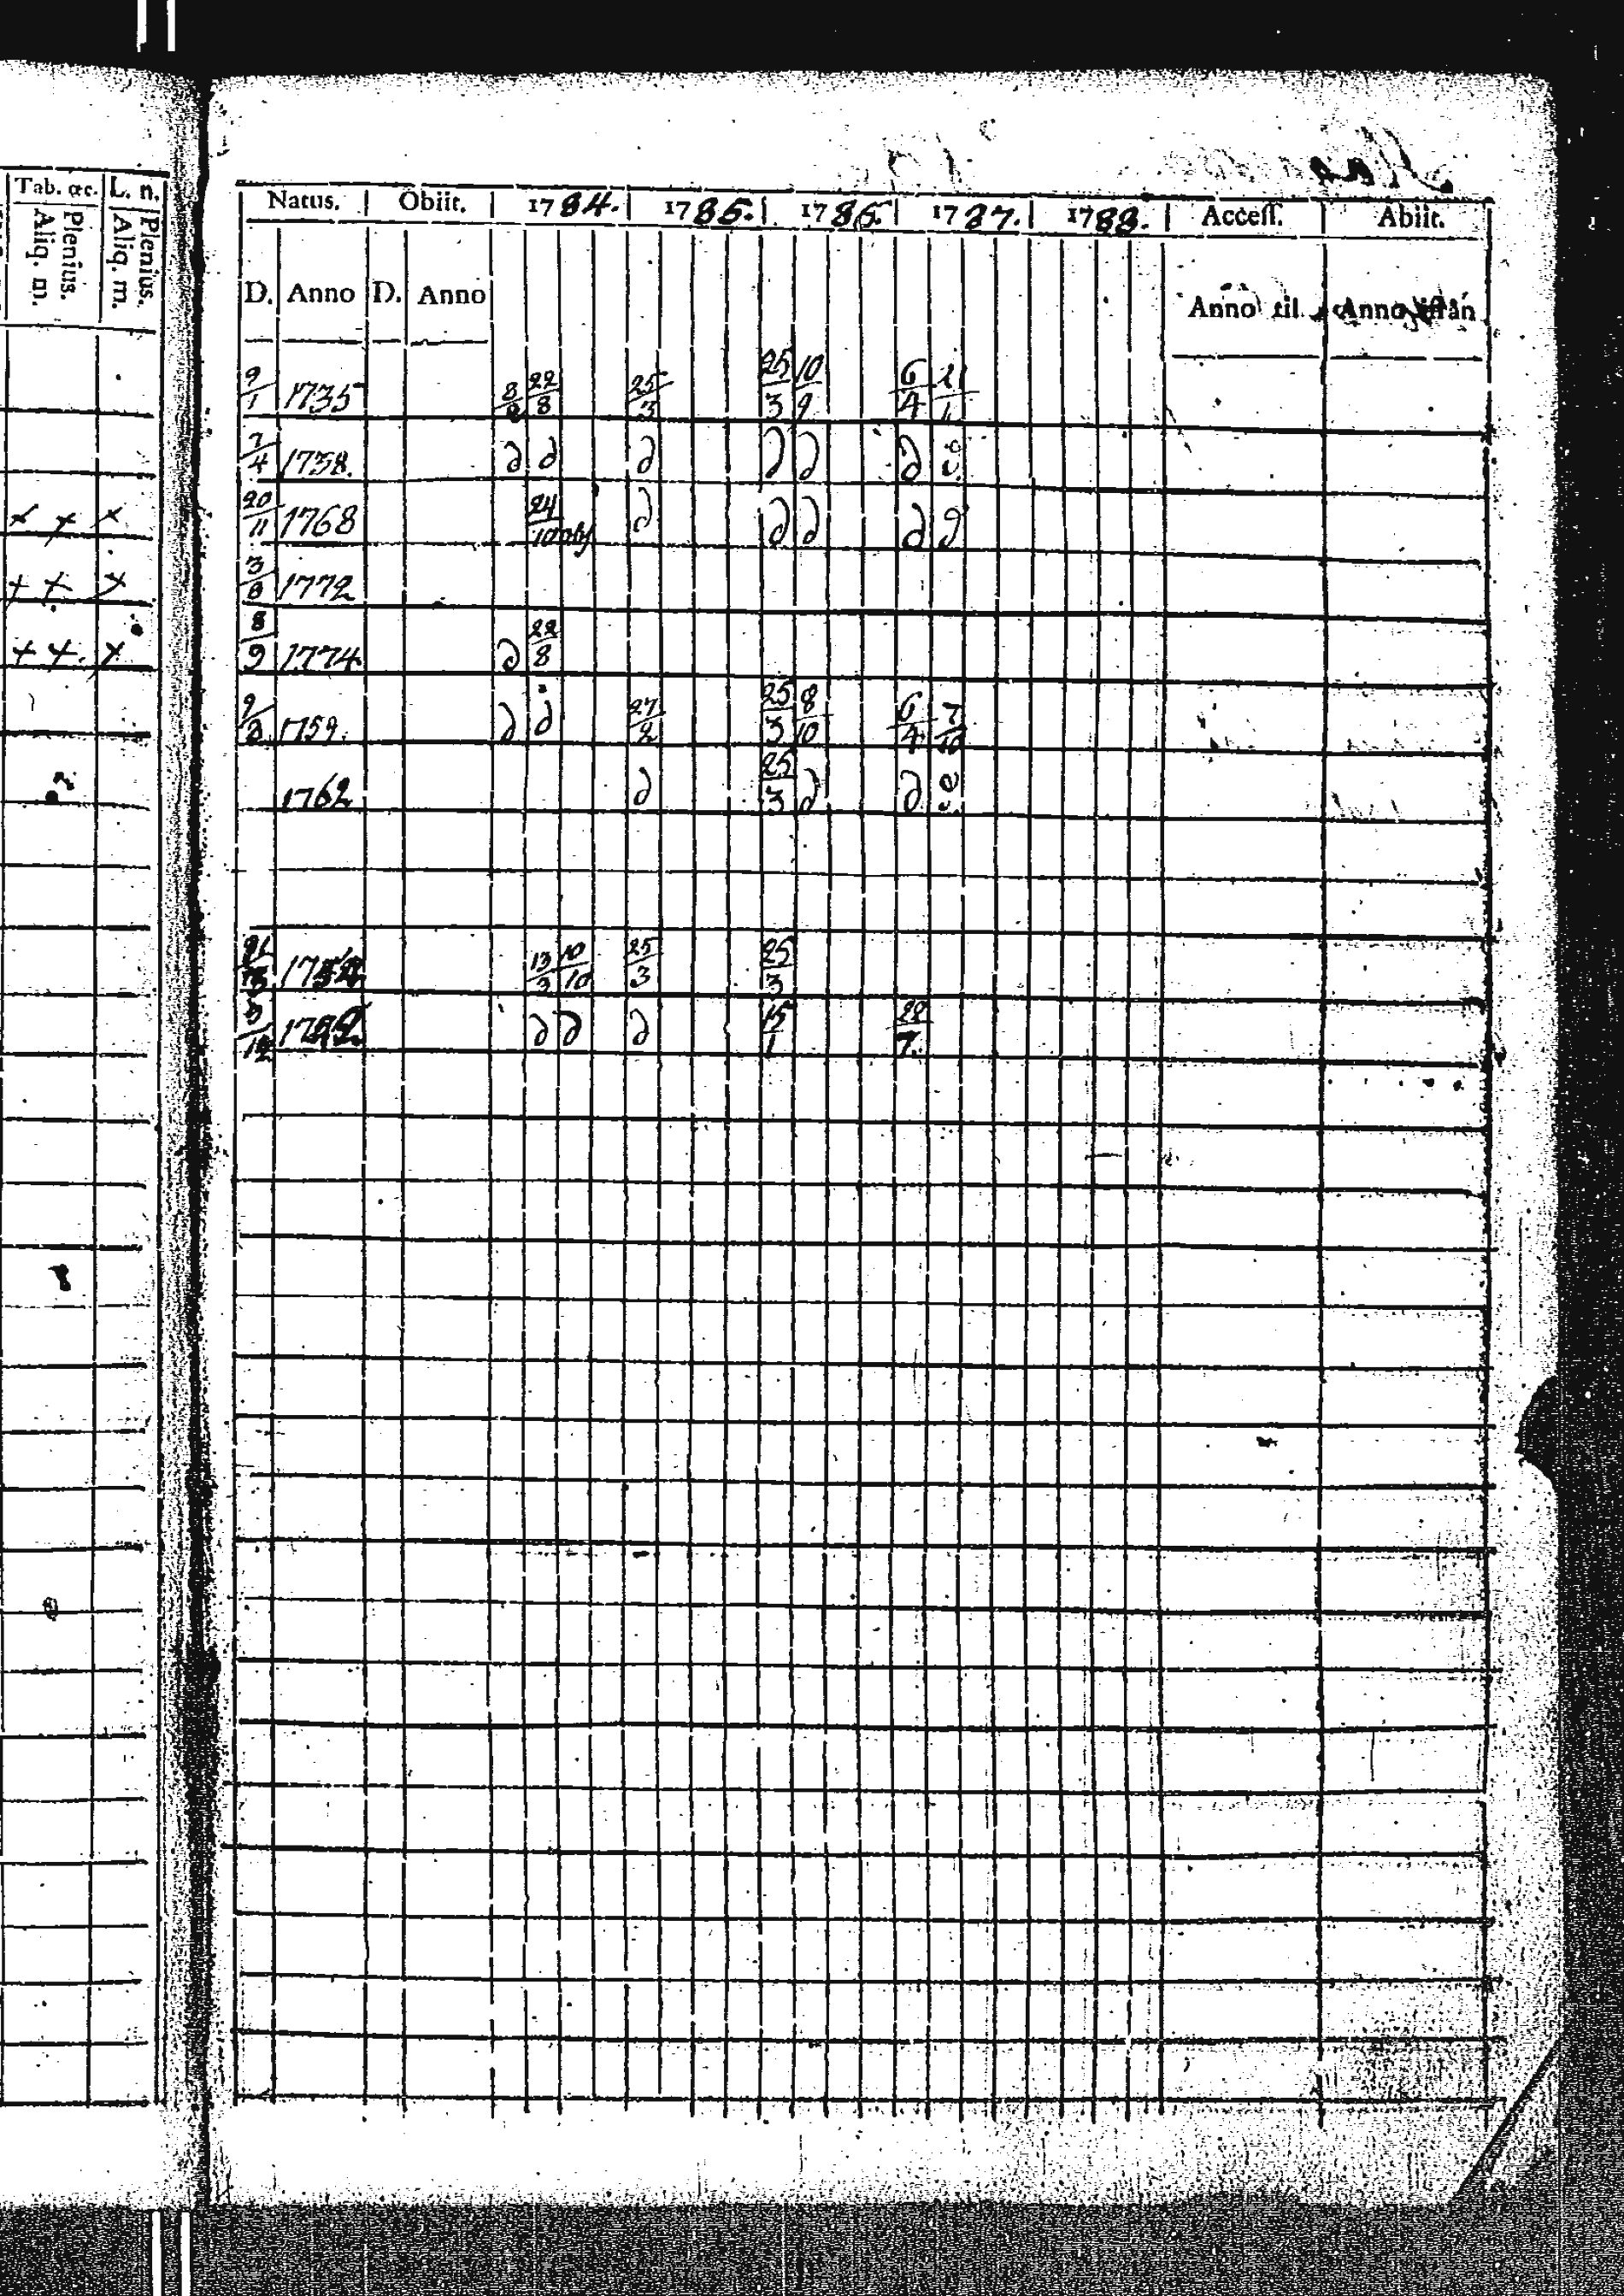 Tab. œc. L. n.
Aliq. m. Plenius. Aliq. m. Plenius.
+ + +
+ + +
+ + +
Natus. Obiit. 1784. 1785. 1786. 1787. 1788. Access. Abiit.
D. Anno D. Anno Anno til. Anno ifrån
9/1 1735 22/8 25/3 25/3 10/9 6/4
7/4 1738. ∂ ∂ ∂ ∂ ∂ ∂
20/11 1768 24/10 abs ∂ ∂ ∂ ∂ ∂
3/8 1772
8/9 1774 ∂ 22/8
1759. ∂ ∂ 27/2 25/3 8/10 6/4 7/10
1762 ∂ 25/3 ∂ ∂
13/3 10/10 25/3 25/3
∂ ∂ ∂ 15/1 28/7.